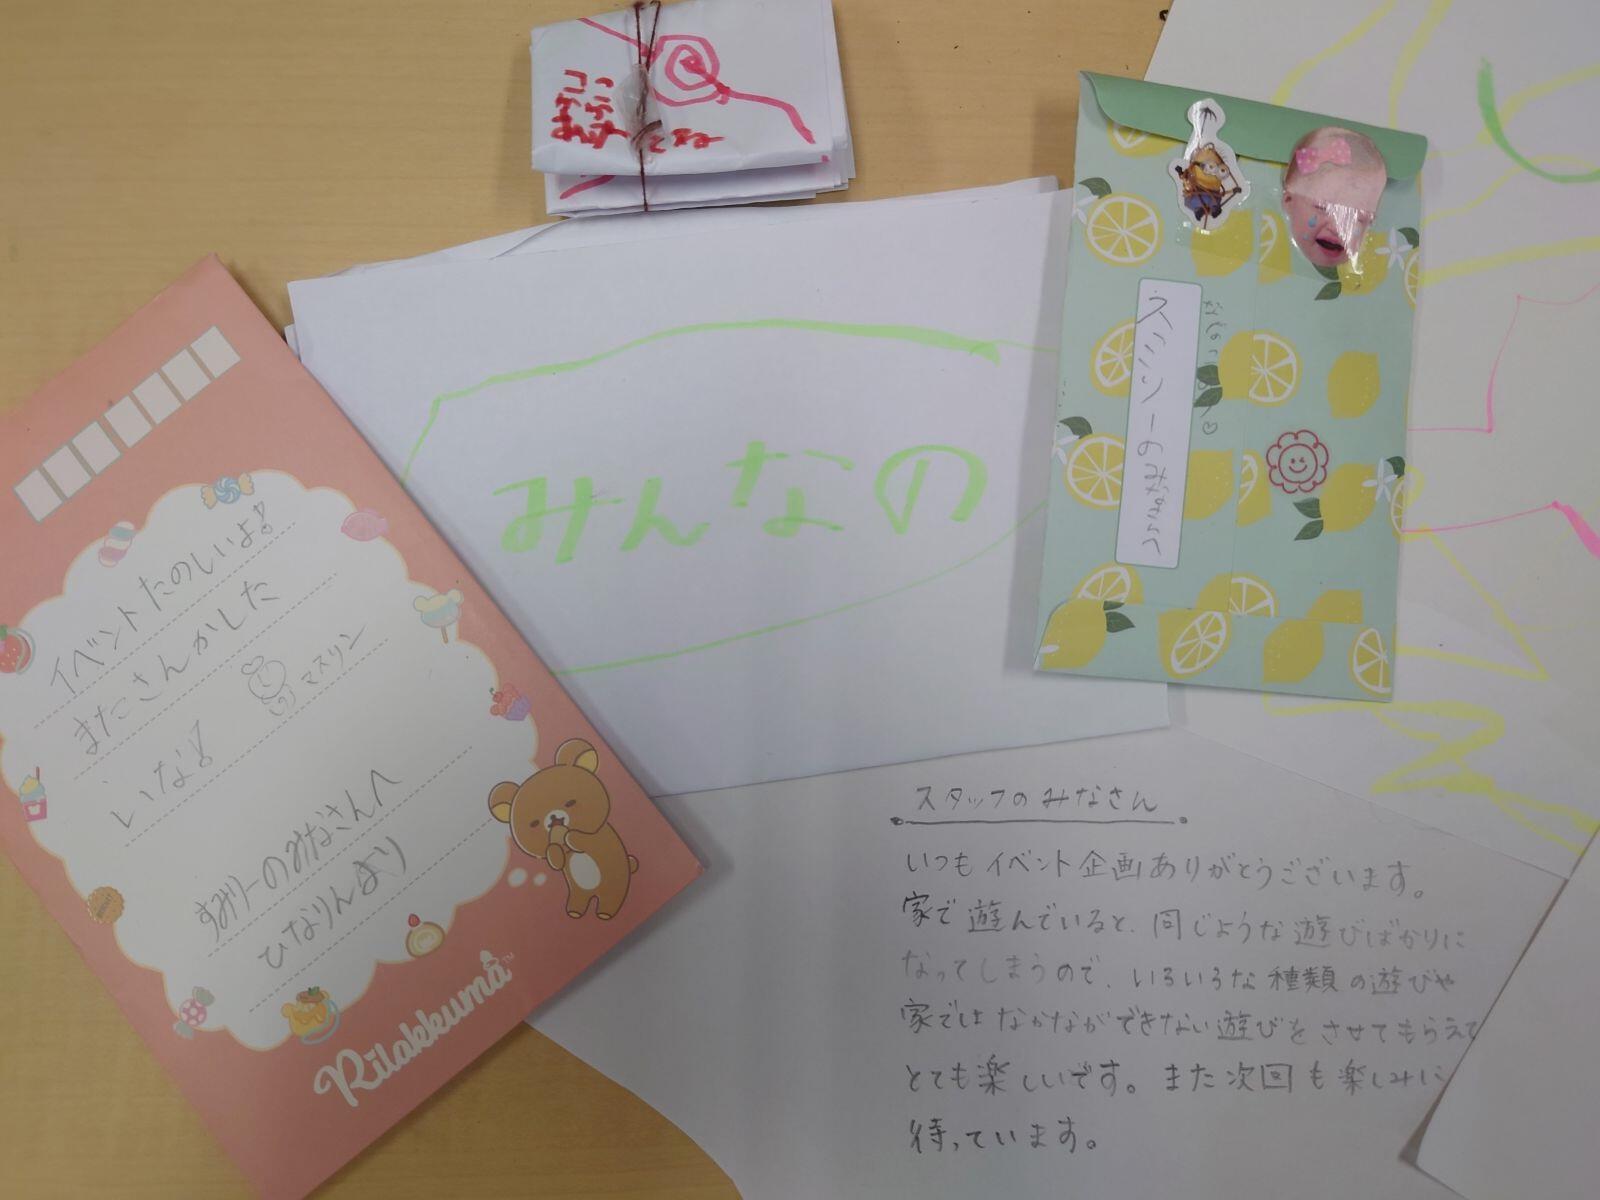 みんなの
スミソーのみなさんへ
イベントたのしいよ!
またさんかした
いな!
マスリン
すみりーのみなさんへ
ひなりんより
Rilakkuma™
スタッフのみなさん
いつもイベント企画ありがとうございます。
家で遊んでいると、同じような遊びばかりに
なってしまうので、いろいろな種類の遊びや
家ではなかなかできない遊びをさせてもらえて
とても楽しいです。また次回も楽しみに
待っています。